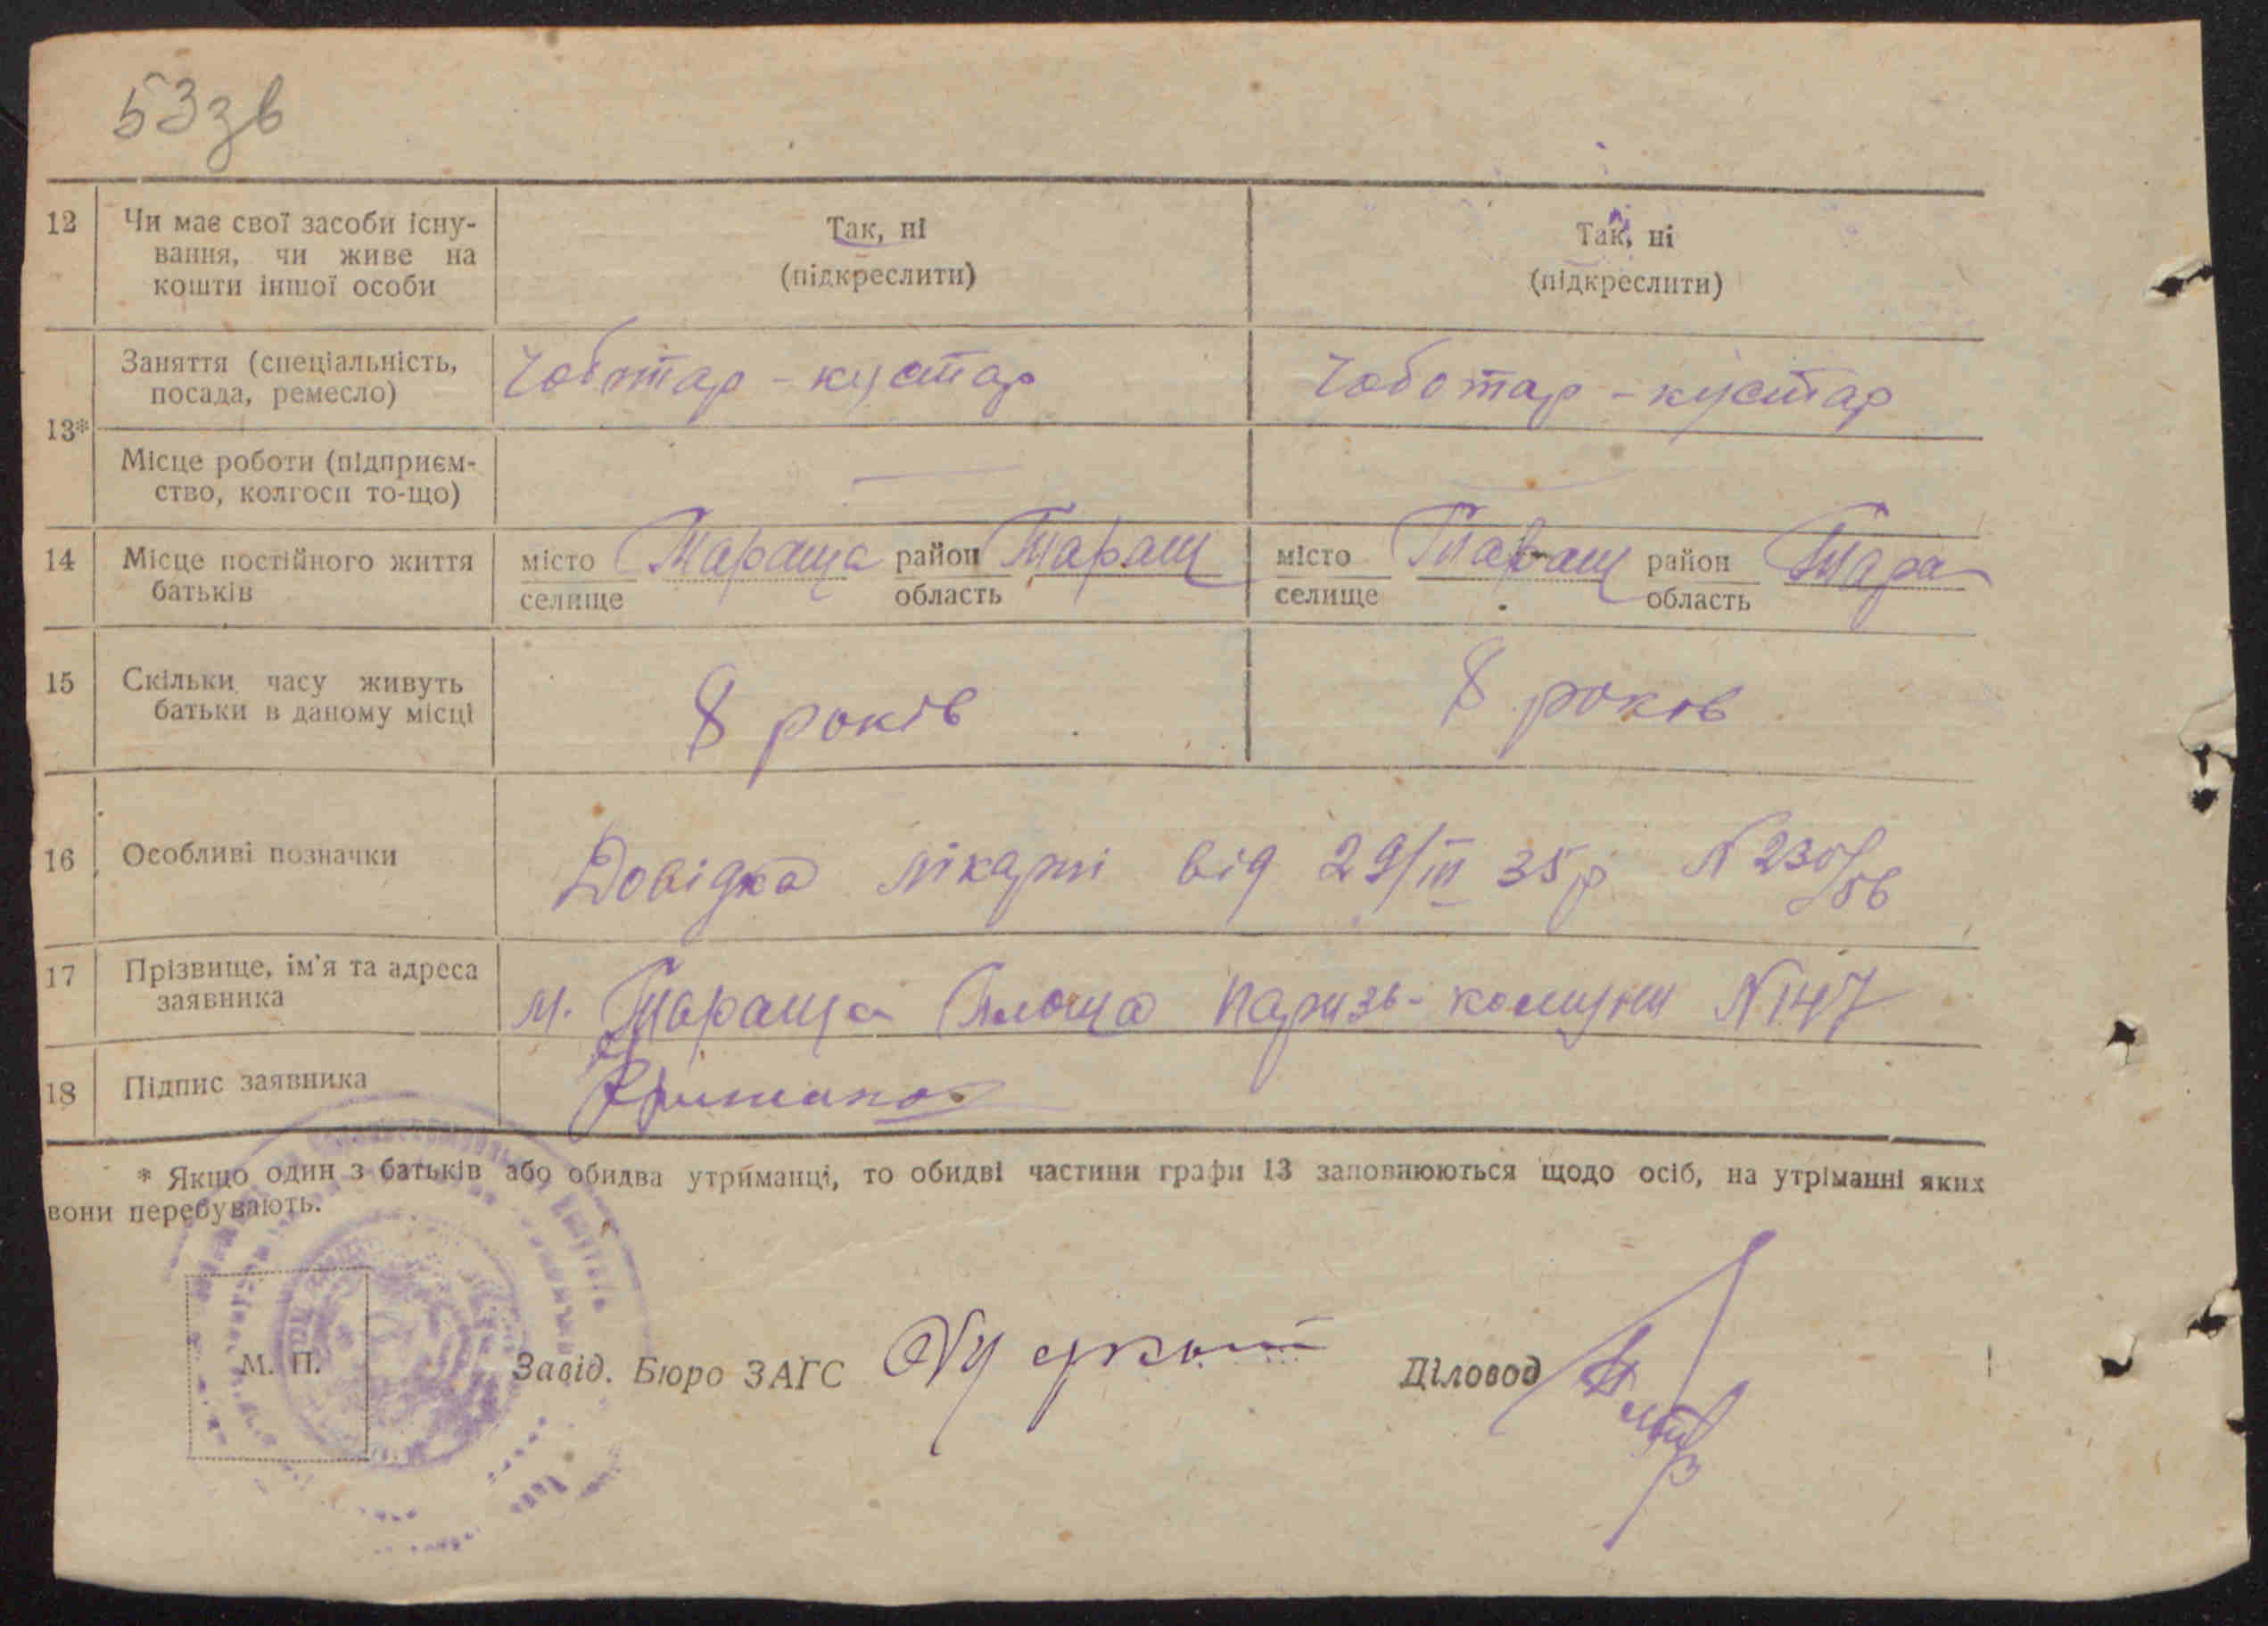 53зв
12 Чи має свої засоби існу- Так, ні Так, ні
вання, чи живе на (підкреслити) (підкреслити)
кошти іншої особи
Заняття (спеціальність, Чоботар - кустар Чоботар - кустар
посада, ремесло)
13*
Місце роботи (підприєм- — —
ство, колгосп то-що)
14 Місце постійного життя місто Тараща район Таращ місто Таращ район Тара
батьків селище область селище область
15 Скільки часу живуть 8 років 8 років
батьки в даному місці
16 Особливі позначки Довідка лікарні від 29/III 35 р N 230/56
17 Прізвище, ім'я та адреса м. Тараща Площа Паризь-комуни N 147
заявника
18 Підпис заявника
* Якщо один з батьків або обидва утриманці, то обидві частини графи 13 заповнюються щодо осіб, на утріманні яких
вони перебувають.
М. П. Завід. Бюро ЗАГС Діловод